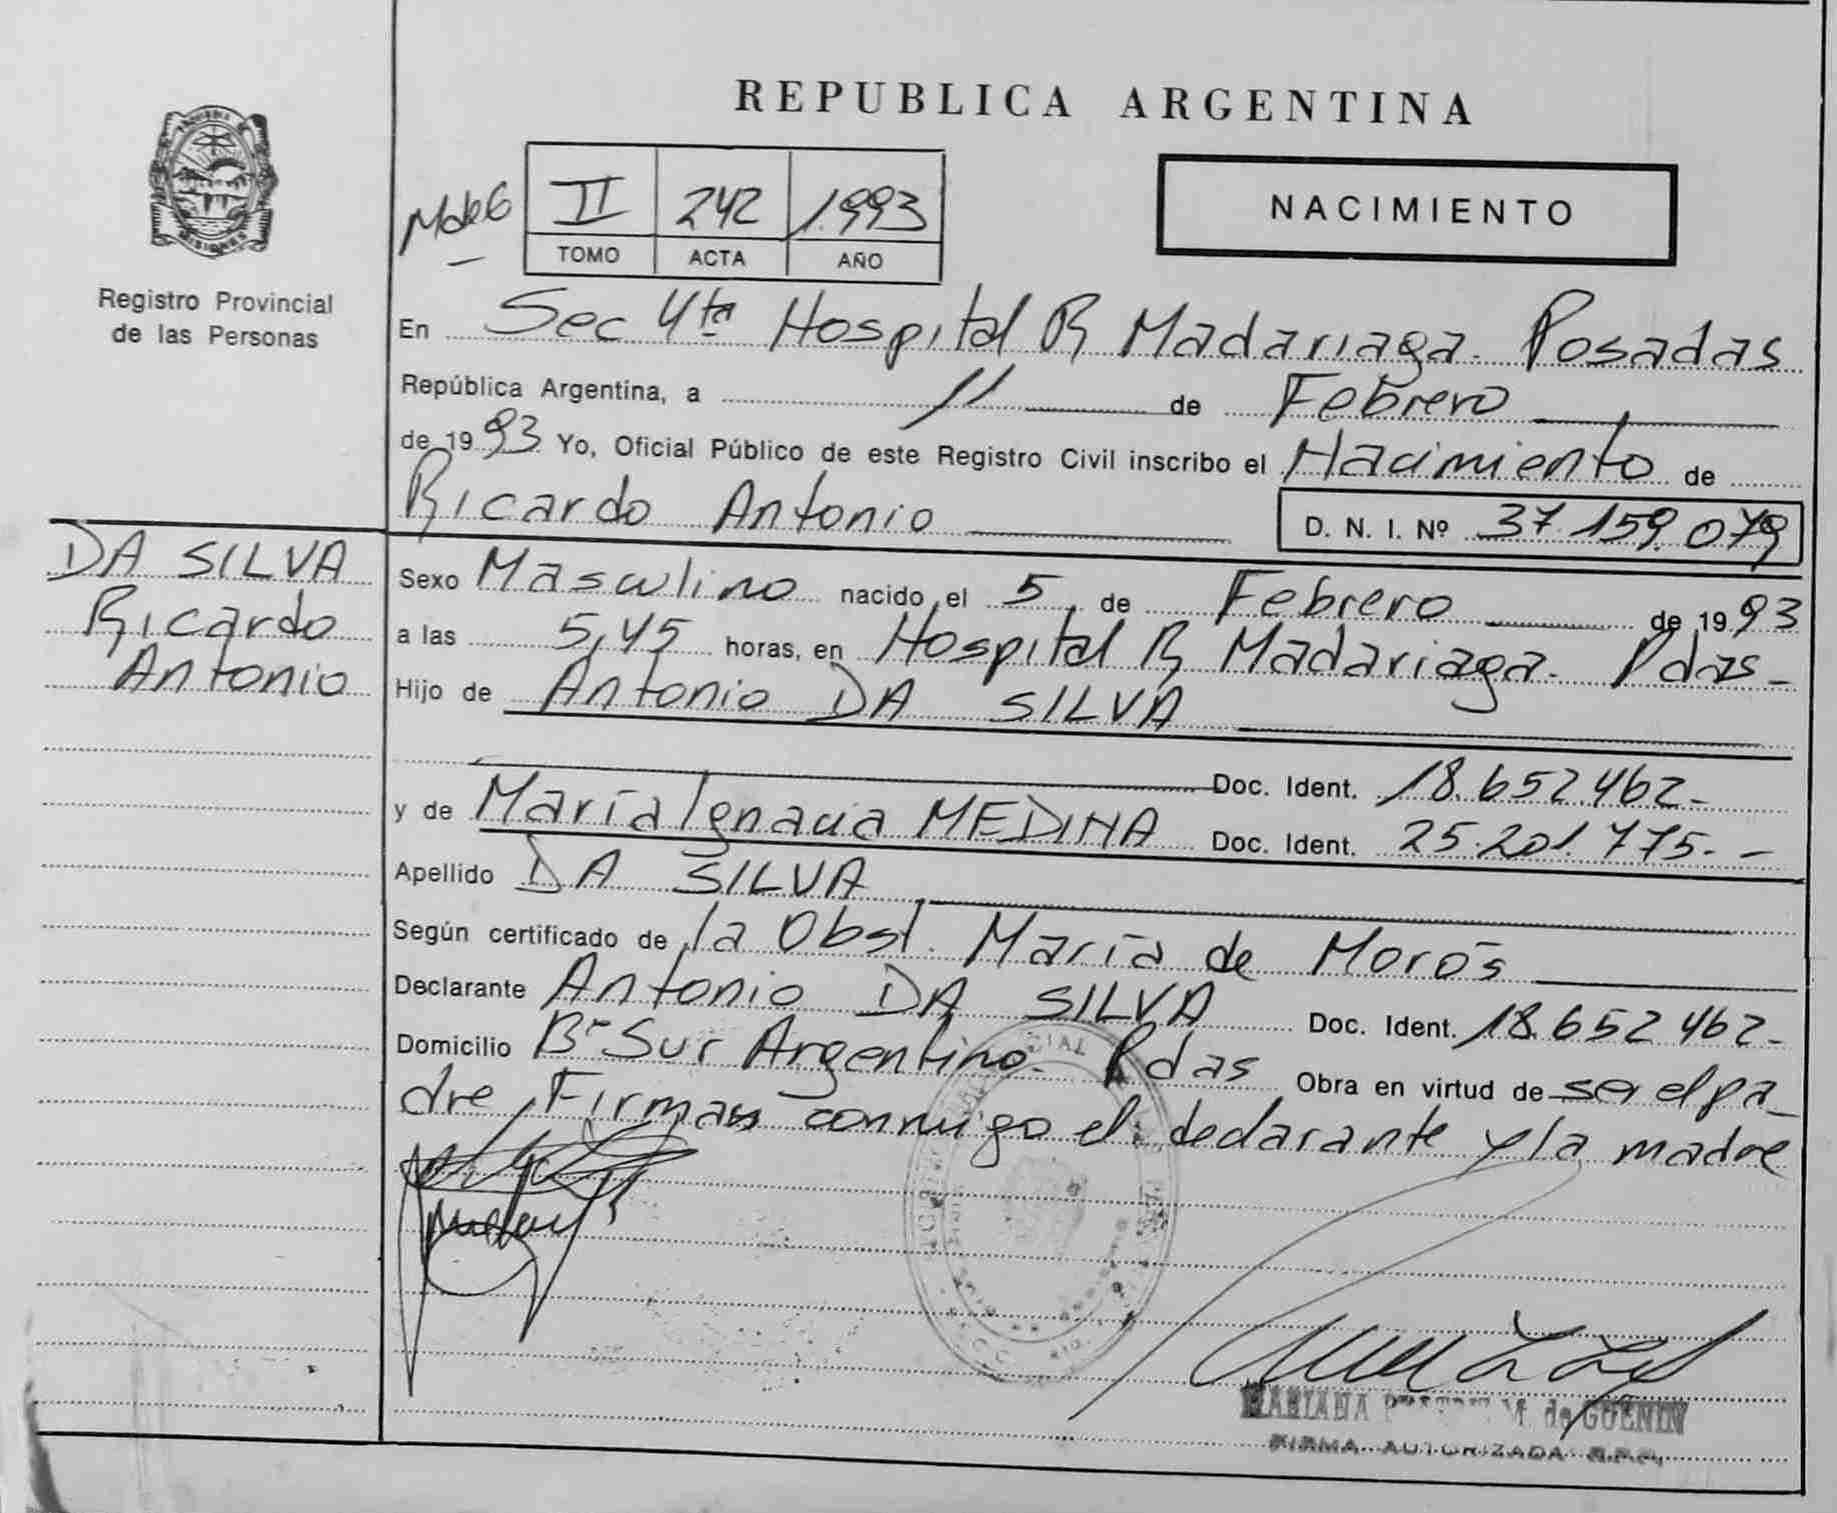 REPUBLICA ARGENTINA
MISIONES
Registro Provincial
de las Personas
II 242 1.993
TOMO ACTA AÑO
NACIMIENTO
En Sec 4ta Hospital R Madariaga. Posadas
República Argentina, a 11 de Febrero
de 1993 Yo, Oficial Público de este Registro Civil inscribo el Nacimiento de
Ricardo Antonio D. N. I. Nº 37.159.079
DA SILVA
Ricardo
Antonio
Sexo Masculino nacido el 5 de Febrero de 1993
a las 5,45 horas, en Hospital R Madariaga. Pdas-
Hijo de Antonio DA SILVA
Doc. Ident. 18.652.462-
y de María Ignacia MEDINA Doc. Ident. 25.201.775.-
Apellido DA SILVA
Según certificado de la Obst. María de Morós
Declarante Antonio DA SILVA Doc. Ident. 18.652.462-
Domicilio Bº Sur Argentino. Pdas Obra en virtud de ser el pa-
dre, Firman conmigo el declarante y la madre
de GUENIN
FIRMA AUTORIZADA